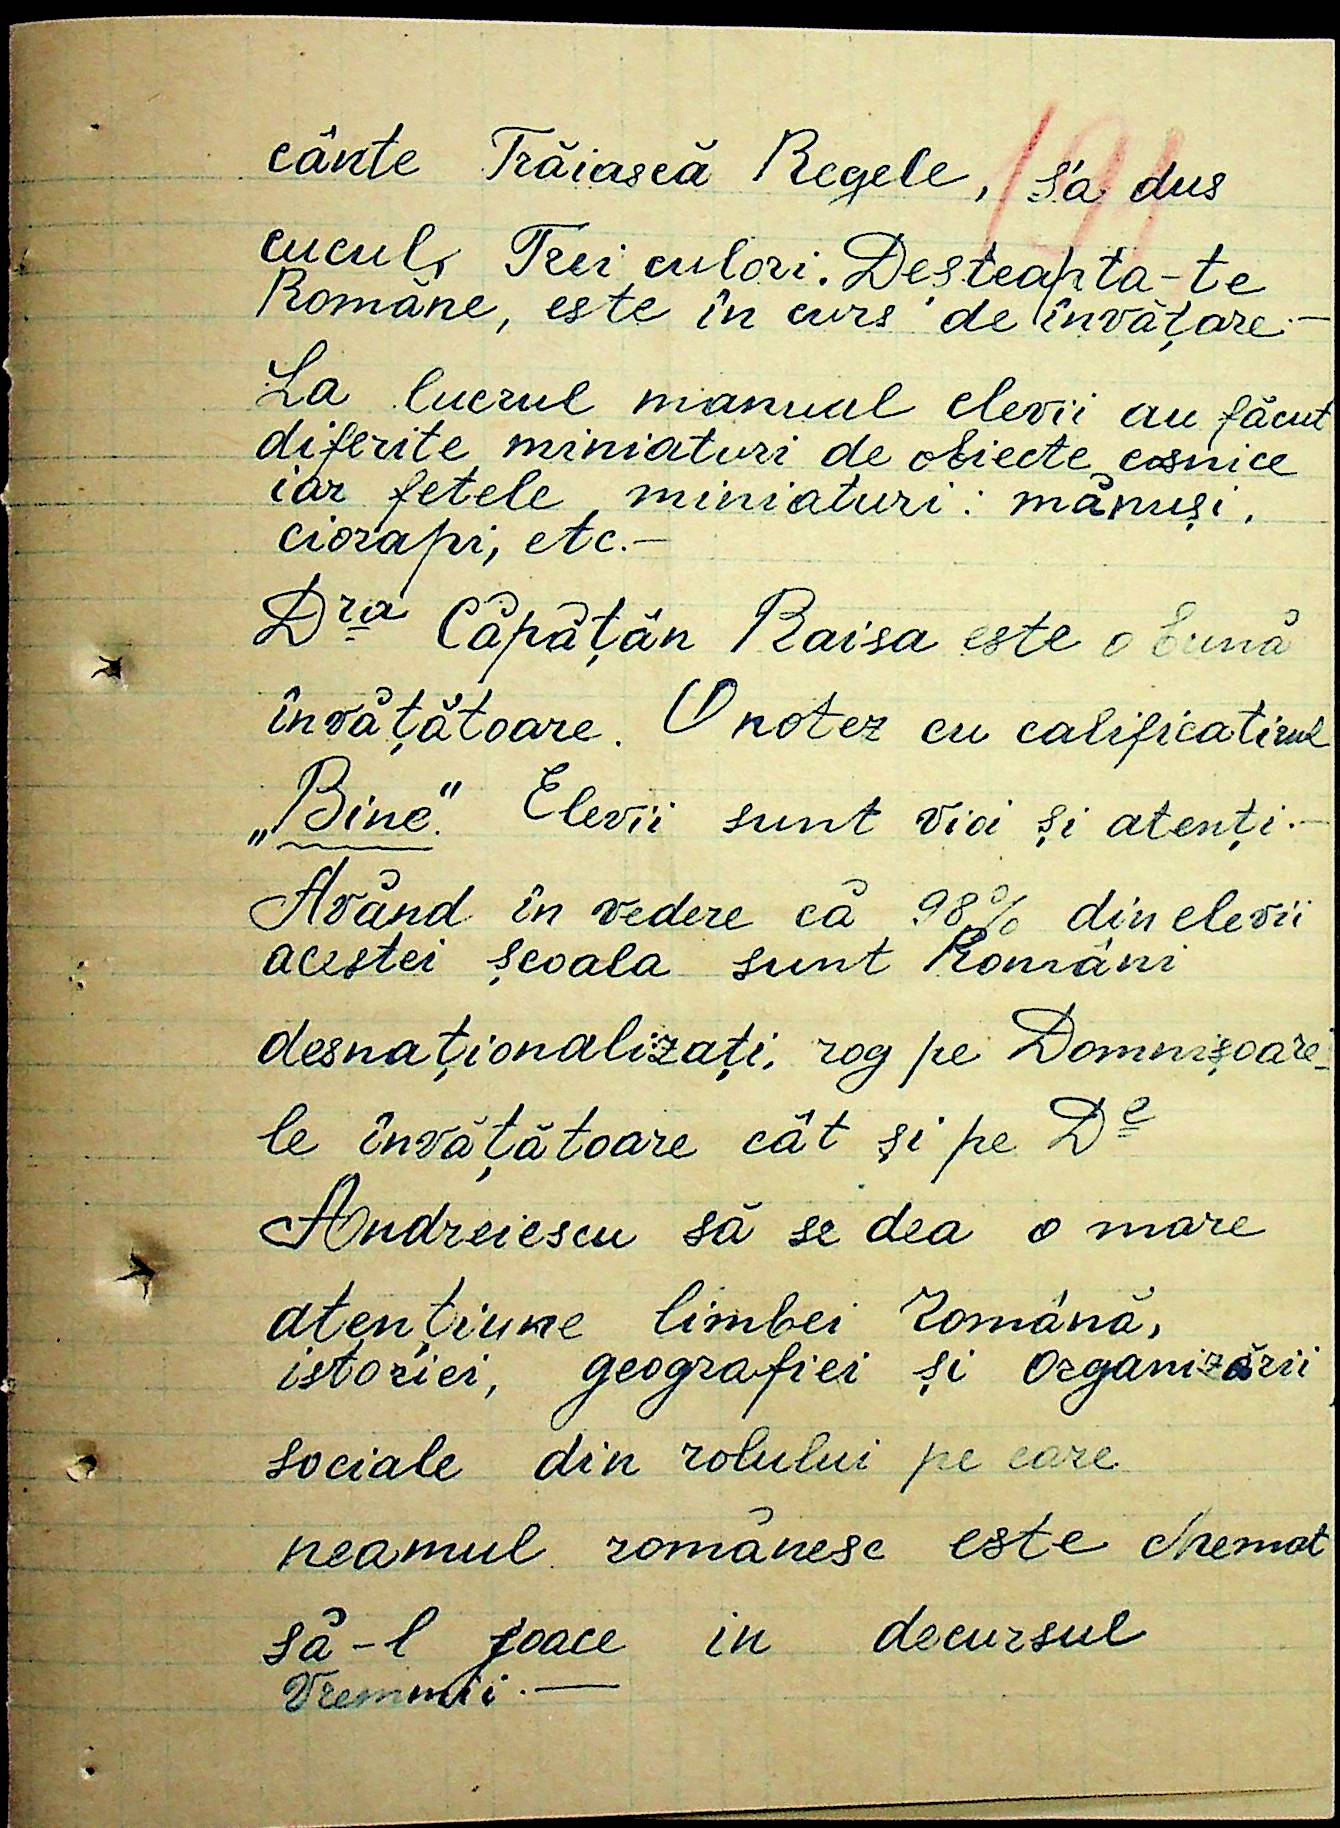 191
cânte Trăiască Regele, s'a dus
cucul, Trei culori. Deșteapta-te
Române, este în curs de învățare.—
La lucrul manual elevii au făcut
diferite miniaturi de obiecte casnice
iar fetele miniaturi: mănuși,
ciorapi, etc.—
Dra Căpățân Raisa este o bună
învățătoare. O notez cu calificativul
„Bine." Elevii sunt vioi și atenți.—
Având în vedere că 98% din elevii
acestei școala sunt Români
desnaționalizați, rog pe Domnișoare-
le învățătoare cât și pe De
Andreiescu să se dea o mare
atențiune limbei Română,
istoriei, geografiei și organizării
sociale din rolului pe care
neamul românesc este chemat
să-l joace in decursul
Vremmii.—